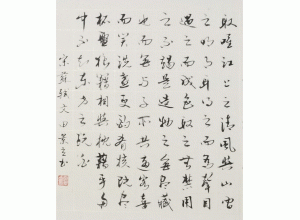 取惟江上之清風與山間
之明月耳得之而為聲目
遇之而成色取之無禁用
之不竭是造物者之無盡藏
也而吾與子之所共適客喜
而笑洗盞更酌肴核既盡
杯盤狼藉相與枕藉乎舟
中不知東方之既白
宋蘇軾文田景書